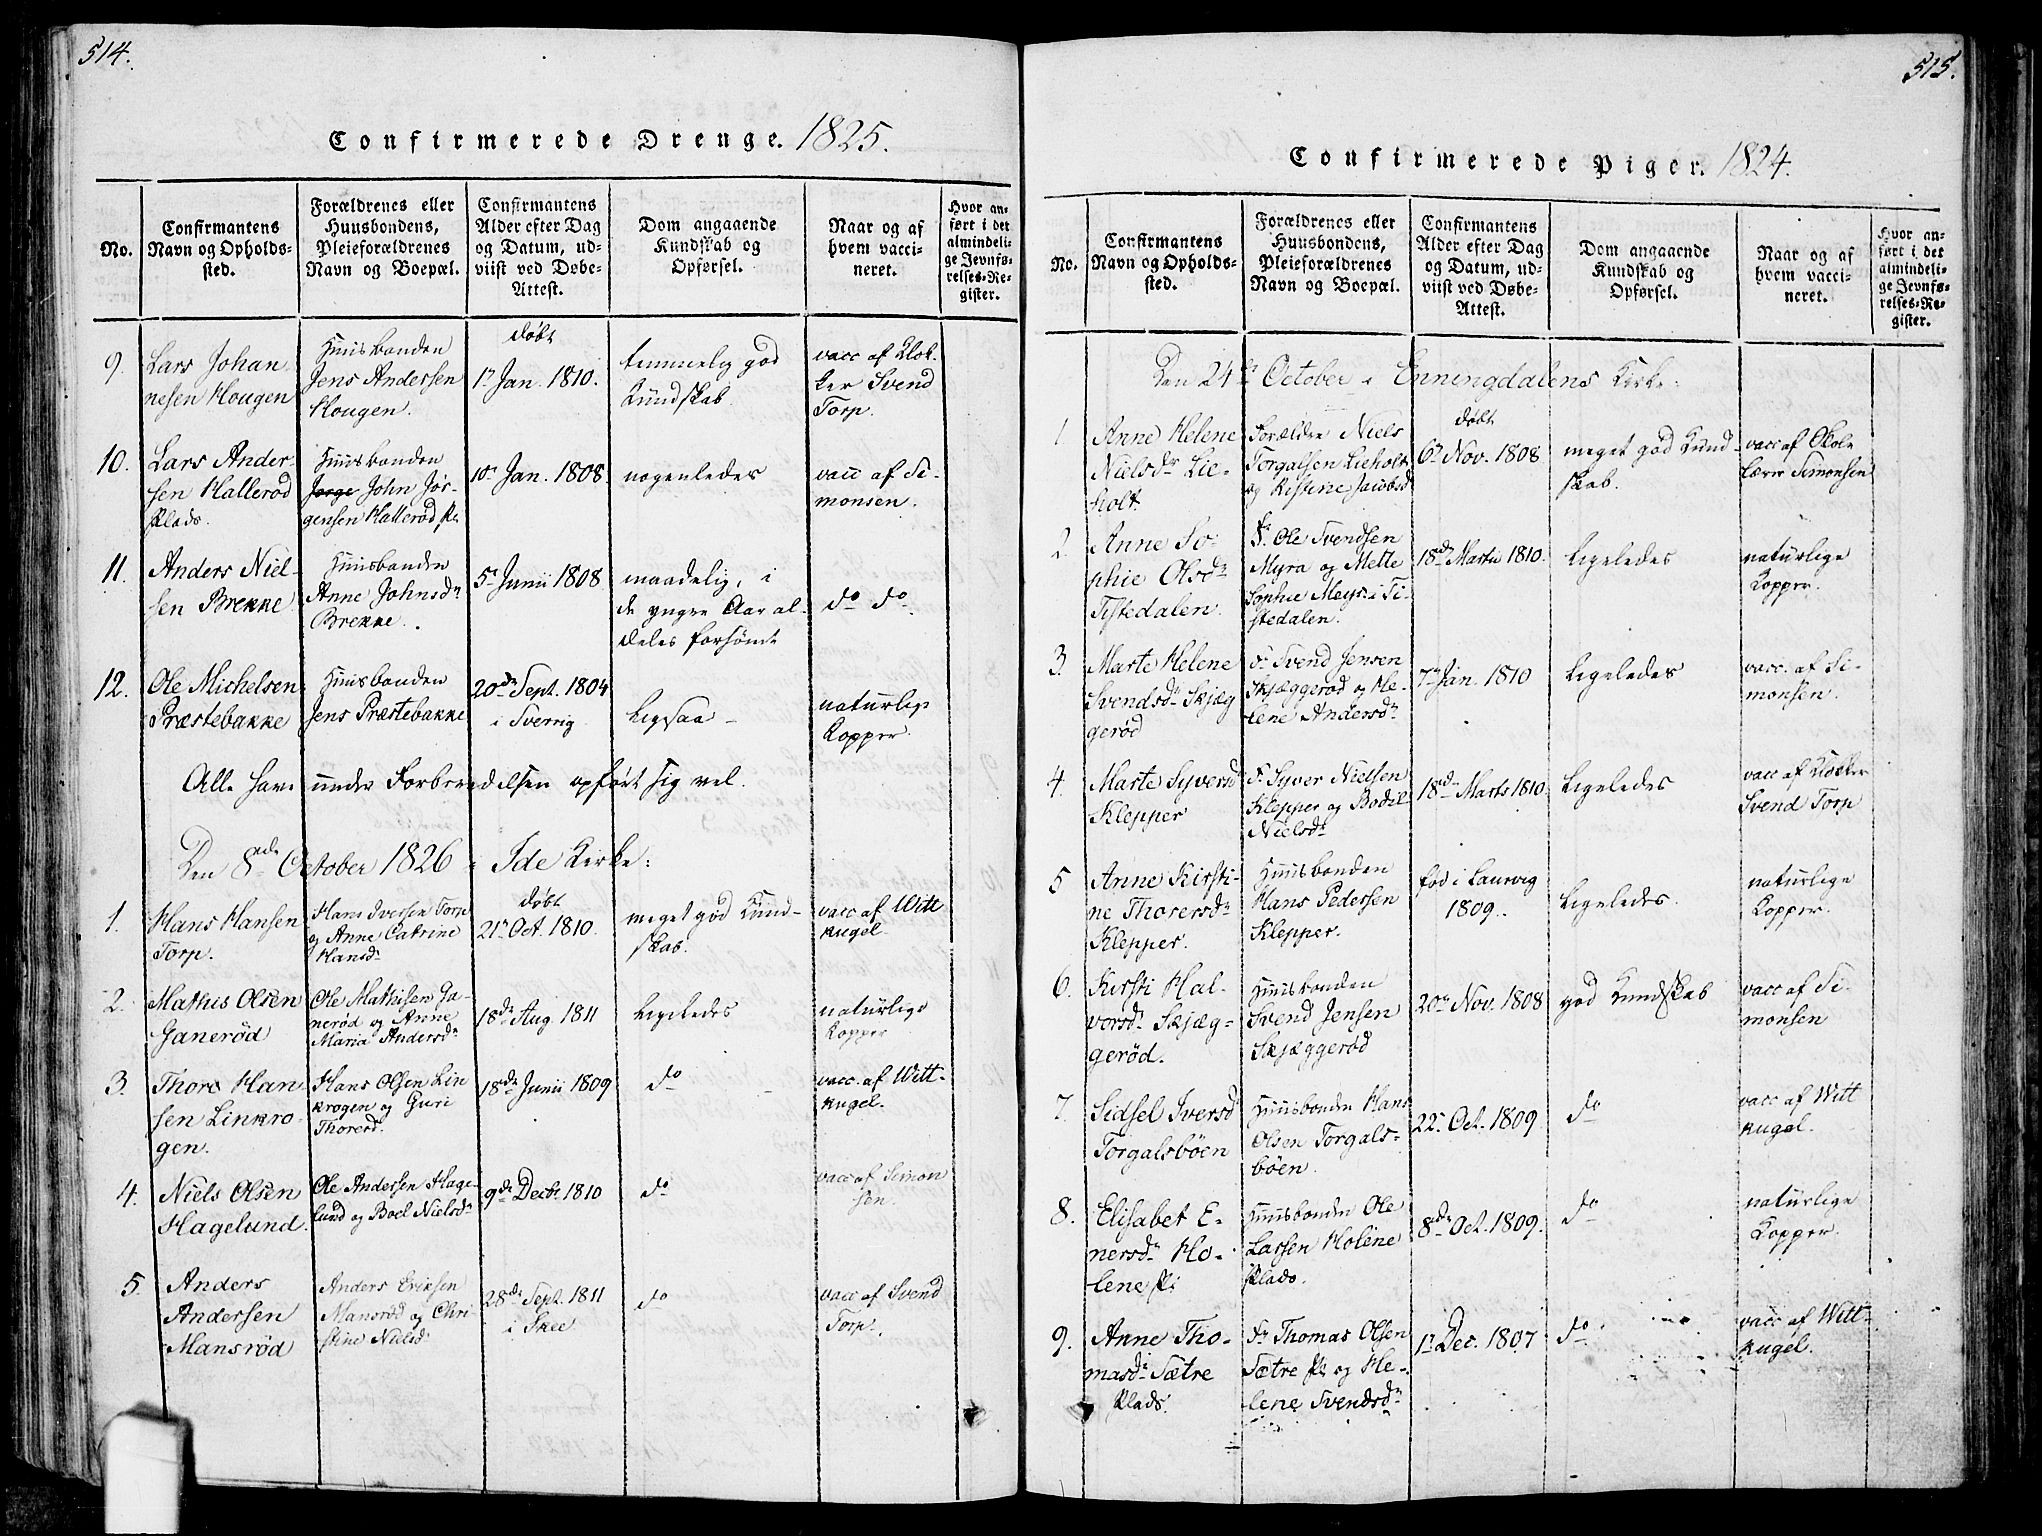 514.
Confirmerede Drenge. 1825.
No.
Confirmantens
Navn og Opholds-
sted.
Forældrenes eller
Huusbondens,
Pleieforældrenes
Navn og Boepæl.
Confirmantens
Alder efter Dag
og Datum, ud-
viist ved Døbe-
Attest.
Dom angaaende
Kundskab og
Opførsel.
Naar og af
hvem vacci-
neret.
Hvor an-
ført i det
almindeli-
ge Jevnfø-
relses-Re-
gister.
9.
Lars Johan-
nesen Hougen
Huusbonden
Jens Andersen
Hougen.
døbt
1 Jan. 1810.
temmelig god
Kundskab.
vacc af Klok-
ker Svend
Torp.
10.
Lars Ander-
sen Hallerød
Plads.
Huusbonden
Jorge John Jør-
gensen Hallerød Pl
1 Jan. 1808.
nogenledes
vacc af Si-
monsen.
11.
Anders Niel-
sen Brekke
Huusbonden
Anne Johnsdr
Brekke.
5 Junii 1808
maadelig, i
de yngre Aar al-
deles forsømt
do do
12.
Ole Michelsen
Præstebakke
Huusbonden
Jens Præstebakke
20de Sept. 1804
i Sverrig
Ligesaa
naturlige
Kopper.
Alle have under Forberedelsen opført sig vel.
Den 8de October 1826 i Ide Kirke:
1.
Hans Hansen
Torp.
Hans Iversen Torp
og Anne Catrine
Hansdr
døbt
21 Oct. 1810.
meget god Kund-
skab.
vacc af Witt
kugel.
2.
Mathis Olsen
Ganerød
Ole Mathisen Ga-
nerød og Anne
Maria Andersdr
18de Aug. 1811
Ligeledes
naturlige
Kopper
3.
Thore Han-
sen Linkro-
gen.
Hans Olsen Lin
krogen og Guri
Thoresd.
18de Junii 1809
do
vacc. af Witt-
kugel.
4.
Niels Olsen
Hagelund.
Ole Andersen Hage-
lund og Boel Nielsdr
9de Decbr. 1810
do
vacc af Simon
sen.
5.
Anders
Andersen
Mansrød
Anders Eriksen
Mansrød og Chri
stine Nielsd
28de Sept. 1811
i Skee
do
vacc af Svend
Torp.
515.
Confirmerede Piger. 1824.
No.
Confirmantens
Navn og Opholds-
sted.
Forældrenes eller
Huusbondens,
Pleieforældrenes
Navn og Boepæl.
Confirmantens
Alder efter Dag
og Datum, ud-
viist ved Døbe-
Attest.
Dom angaaende
Kundskab og
Opførsel.
Naar og af
hvem vacci-
neret.
Hvor an-
ført i det
almindeli-
ge Jevnfø-
relses-Re-
gister.
Den 24de October i Enningdalens Kirke:
1
Anne Helene
Nielsdr Lie-
holt.
Forældre Niels
Torgalsen Lieholt
og Kistine Jacobsd
døbt
6 Nov. 1808
meget god Kund-
skab.
vacc af Skole
lærer Simonsen
2.
Anne So-
phie Olsdr
Tistedalen.
Fr Ole Svendsen
Myra og Mette
Sophie Meyr i Ti-
stedalen.
18de Martii 1810.
Ligeledes
naturlige
Kopper.
3.
Marte Helene
Svendsdr Skjæg
gerød
Fr Svend Jensen
Skjæggerød og He-
lene Andersdr
7 Jan. 1810
Ligeledes
vacc. af Si-
monsen.
4.
Marte Syversd
Klepper
Fr Syver Nielsen
Klepper og Bodil
Nielsdr
18de Marts 1810.
Ligeledes
vacc af Klokker
Svend Torp
5
Anne Kirsti-
ne Thorersdr
Klepper.
Huusbonden
Hans Pedersen
Klepper.
fød i Laurvig
1809.
Ligeledes.
naturlige
Kopper.
6.
Kirsti Hal-
vorsdr Skjæg-
gerød.
Huusbonden
Svend Jensen
Skjæggerød
20 Nov. 1808
god Kundskab
vacc af Si-
monsen
7.
Sidsel Iversd
Torgalsböen
Huusbonden Hans
Olsen Torgals-
böen.
22 Oct. 1809
do
vacc af Witt
kugel.
8.
Elisabet E-
nersdr Ho-
lene Pl:
Huusbonden Ole
Larsen Holene
Plads.
8de Oct. 1809.
do
naturlige
Kopper.
9.
Anne Tho-
masdr Sætre
Plads.
Fr Thomas Olsen
Sætre Pl og He-
lene Svendsdr
1 Dec. 1807
do
vacc af Witt-
kugel.